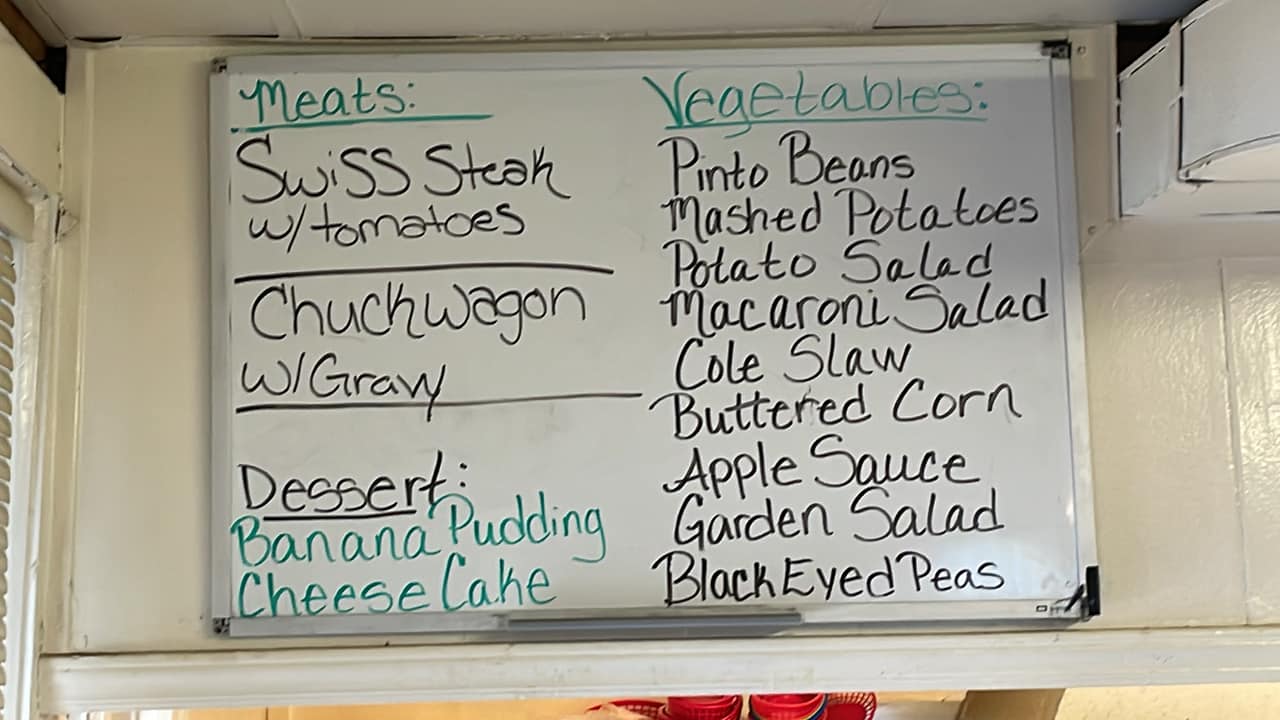 Meats:
Swiss Steak
w/tomatoes
Chuckwagon
w/Gravy
Dessert:
Banana Pudding
Cheese Cake
Vegetables:
Pinto Beans
Mashed Potatoes
Potato Salad
Macaroni Salad
Cole Slaw
Buttered Corn
Apple Sauce
Garden Salad
Black Eyed Peas